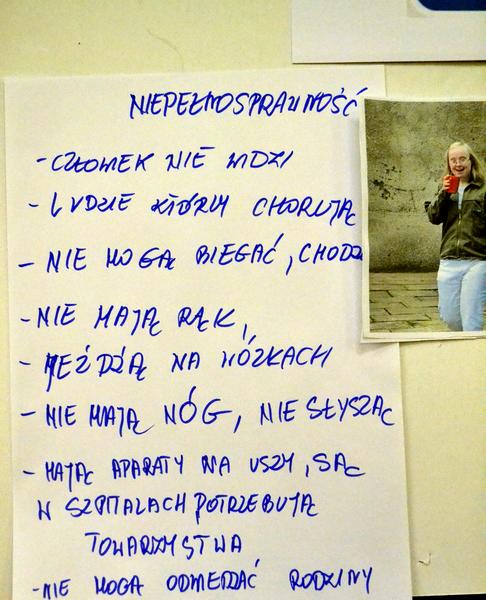 NIEPEŁNOSPRAWNOŚĆ
- CZŁOWIEK NIE WIDZI
- LUDZIE KTÓRZY CHORUJĄ
- NIE MOGĄ BIEGAĆ, CHODZI
- NIE MAJĄ RĄK,
- JEŹDŻĄ NA WÓZKACH
- NIE MAJĄ NÓG, NIE SŁYSZĄ
- MAJĄ APARATY NA USZY, SĄ
W SZPITALACH POTRZEBUJĄ
TOWARZYSTWA
- NIE MOGĄ ODWIEDZAĆ RODZINY